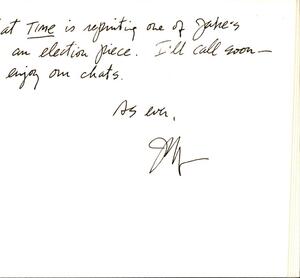 at Time is reprinting one of Jake's
an election piece. I'll call soon—
enjoy our chats.
As ever,